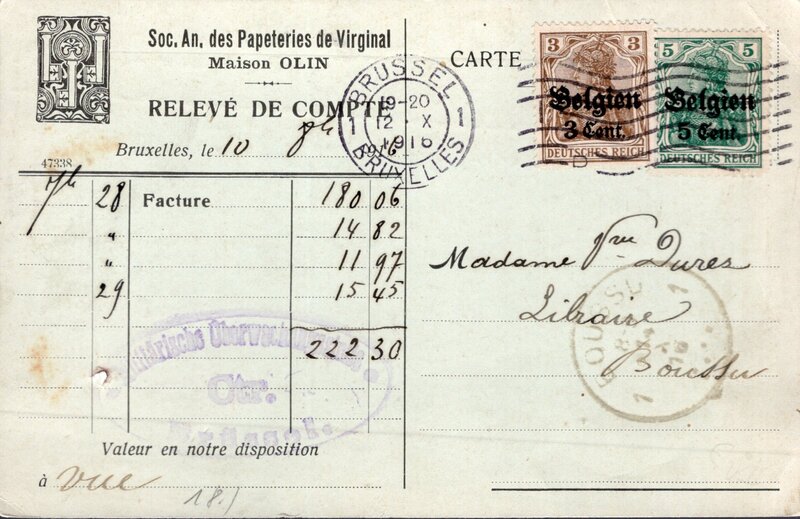 Soc. An. des Papeteries de Virginal
Maison OLIN
RELEVÉ DE COMPTE
Bruxelles, le 10 8h 1916
47338
7h 28 Facture 180 06
" 14 82
" 11 97
29 15 45
222 30
Valeur en notre disposition
à vue
18.)
CARTE
BRUSSEL
1 19-20 1
12 X
1916
BRUXELLES
3 3
Belgien
3 Cent.
DEUTSCHES REICH
5 5
Belgien
5 Cent.
DEUTSCHES REICH
Madame Vve Durez
Libraire
Boussu
BOUSSU
1 1
Militärische Überwachungsstelle
Ctr.
Brüssel.